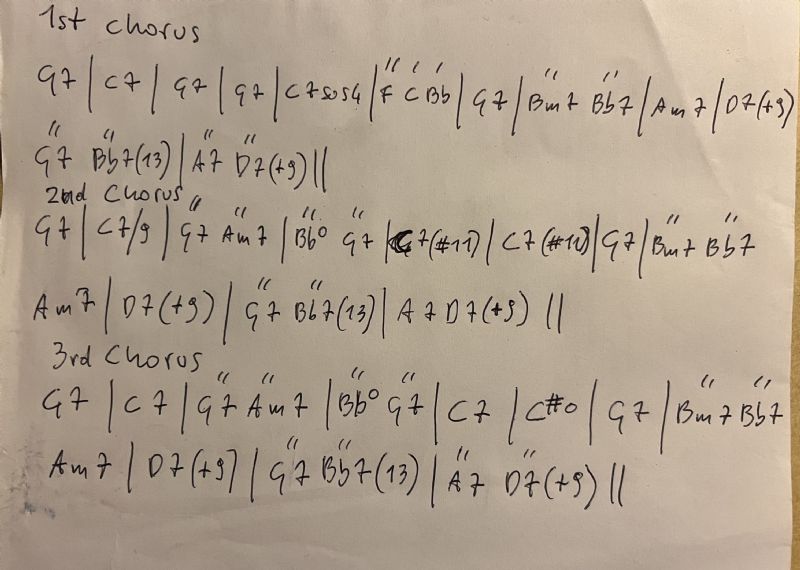 1st chorus
G7 | C7 | G7 | G7 | C7sus4 | F" C' Bb' | G7 | Bm7" Bb7" | Am7 | D7(+9)
G7" Bb7(13)" | A7" D7(+9)" ||
2nd Chorus
G7 | C7/9 | G7" Am7" | Bb°" G7" | C7(#11) | C7(#11) | G7 | Bm7" Bb7"
Am7 | D7(+9) | G7" Bb7(13)" | A7 D7(+9) ||
3rd Chorus
G7 | C7 | G7" Am7" | Bb°" G7" | C7 | C#° | G7 | Bm7" Bb7"
Am7 | D7(+9) | G7" Bb7(13)" | A7" D7(+9)" ||